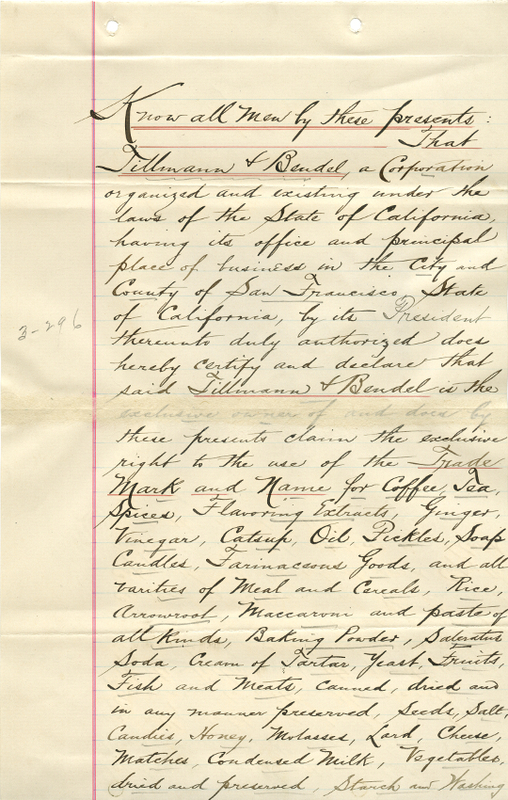 Know all Men by these presents:
That
Tillmann & Bendel, a Corporation
organized and existing under the
laws of the State of California,
having its office and principal
place of business in the City and
County of San Francisco, State
of California, by its President
3-296
thereunto duly authorized does
hereby certify and declare that
said Tillmann & Bendel is the
exclusive owner of, and does by
these presents claim the exclusive
right to the use of the Trade
Mark and Name for Coffee, Tea,
Spices, Flavoring Extracts, Ginger,
Vinegar, Catsup, Oil, Pickles, Soap
Candles, Farinaceous Goods, and all
varities of Meal and Cereals, Rice,
Arrowroot, Maccaroni and paste of
all kinds, Baking Powder, Saleratus
Soda, Cream of Tartar, Yeast, Fruits,
Fish and Meats, canned, dried and
in any manner preserved, Seeds, Salt,
Candies, Honey, Molasses, Lard, Cheese,
Matches, Condensed Milk, Vegetables,
dried and preserved, Starch and Washing